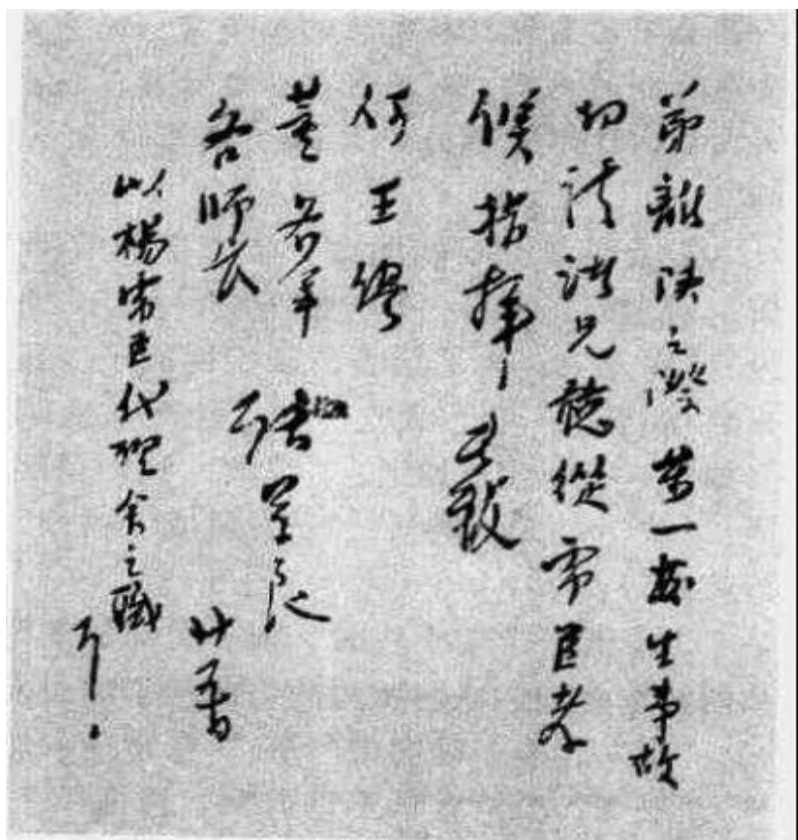 弟離陝之際萬一發生事故
切請諸兄聽從虎臣孝
侯指揮此致
何王繆
董各軍
各師長
張學良
廿五日
以楊虎臣代理余之職